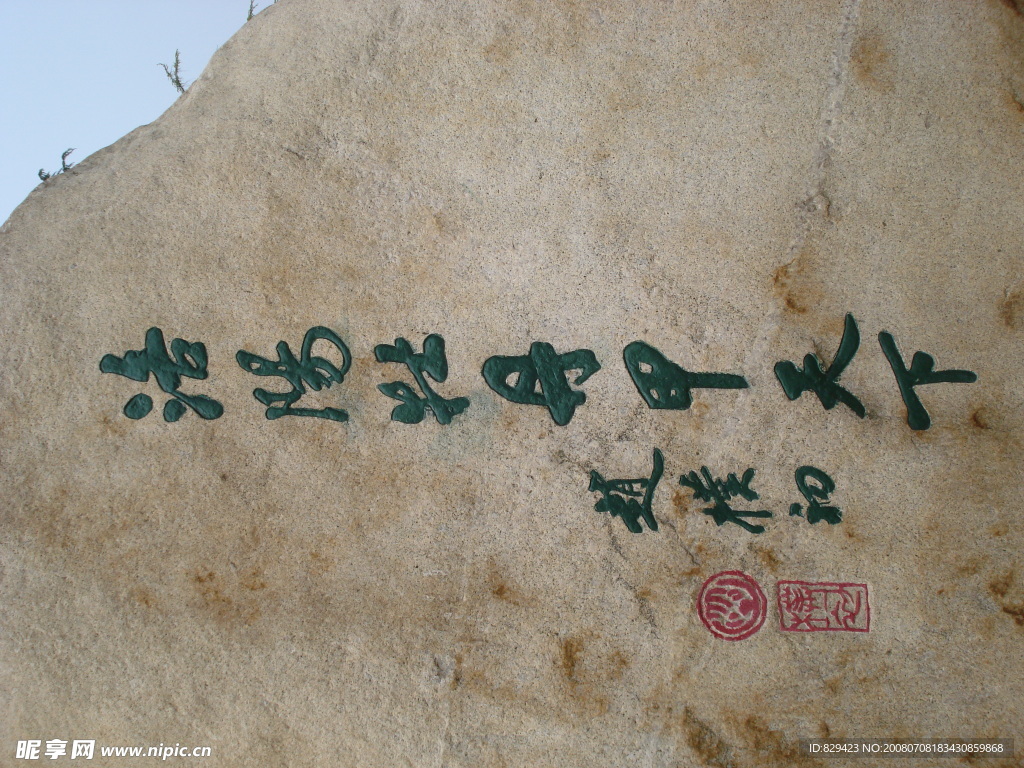 洛陽牡丹甲天下
趙樸初
昵享网 www.nipic.cn
ID:829423 NO:20080708183430859868